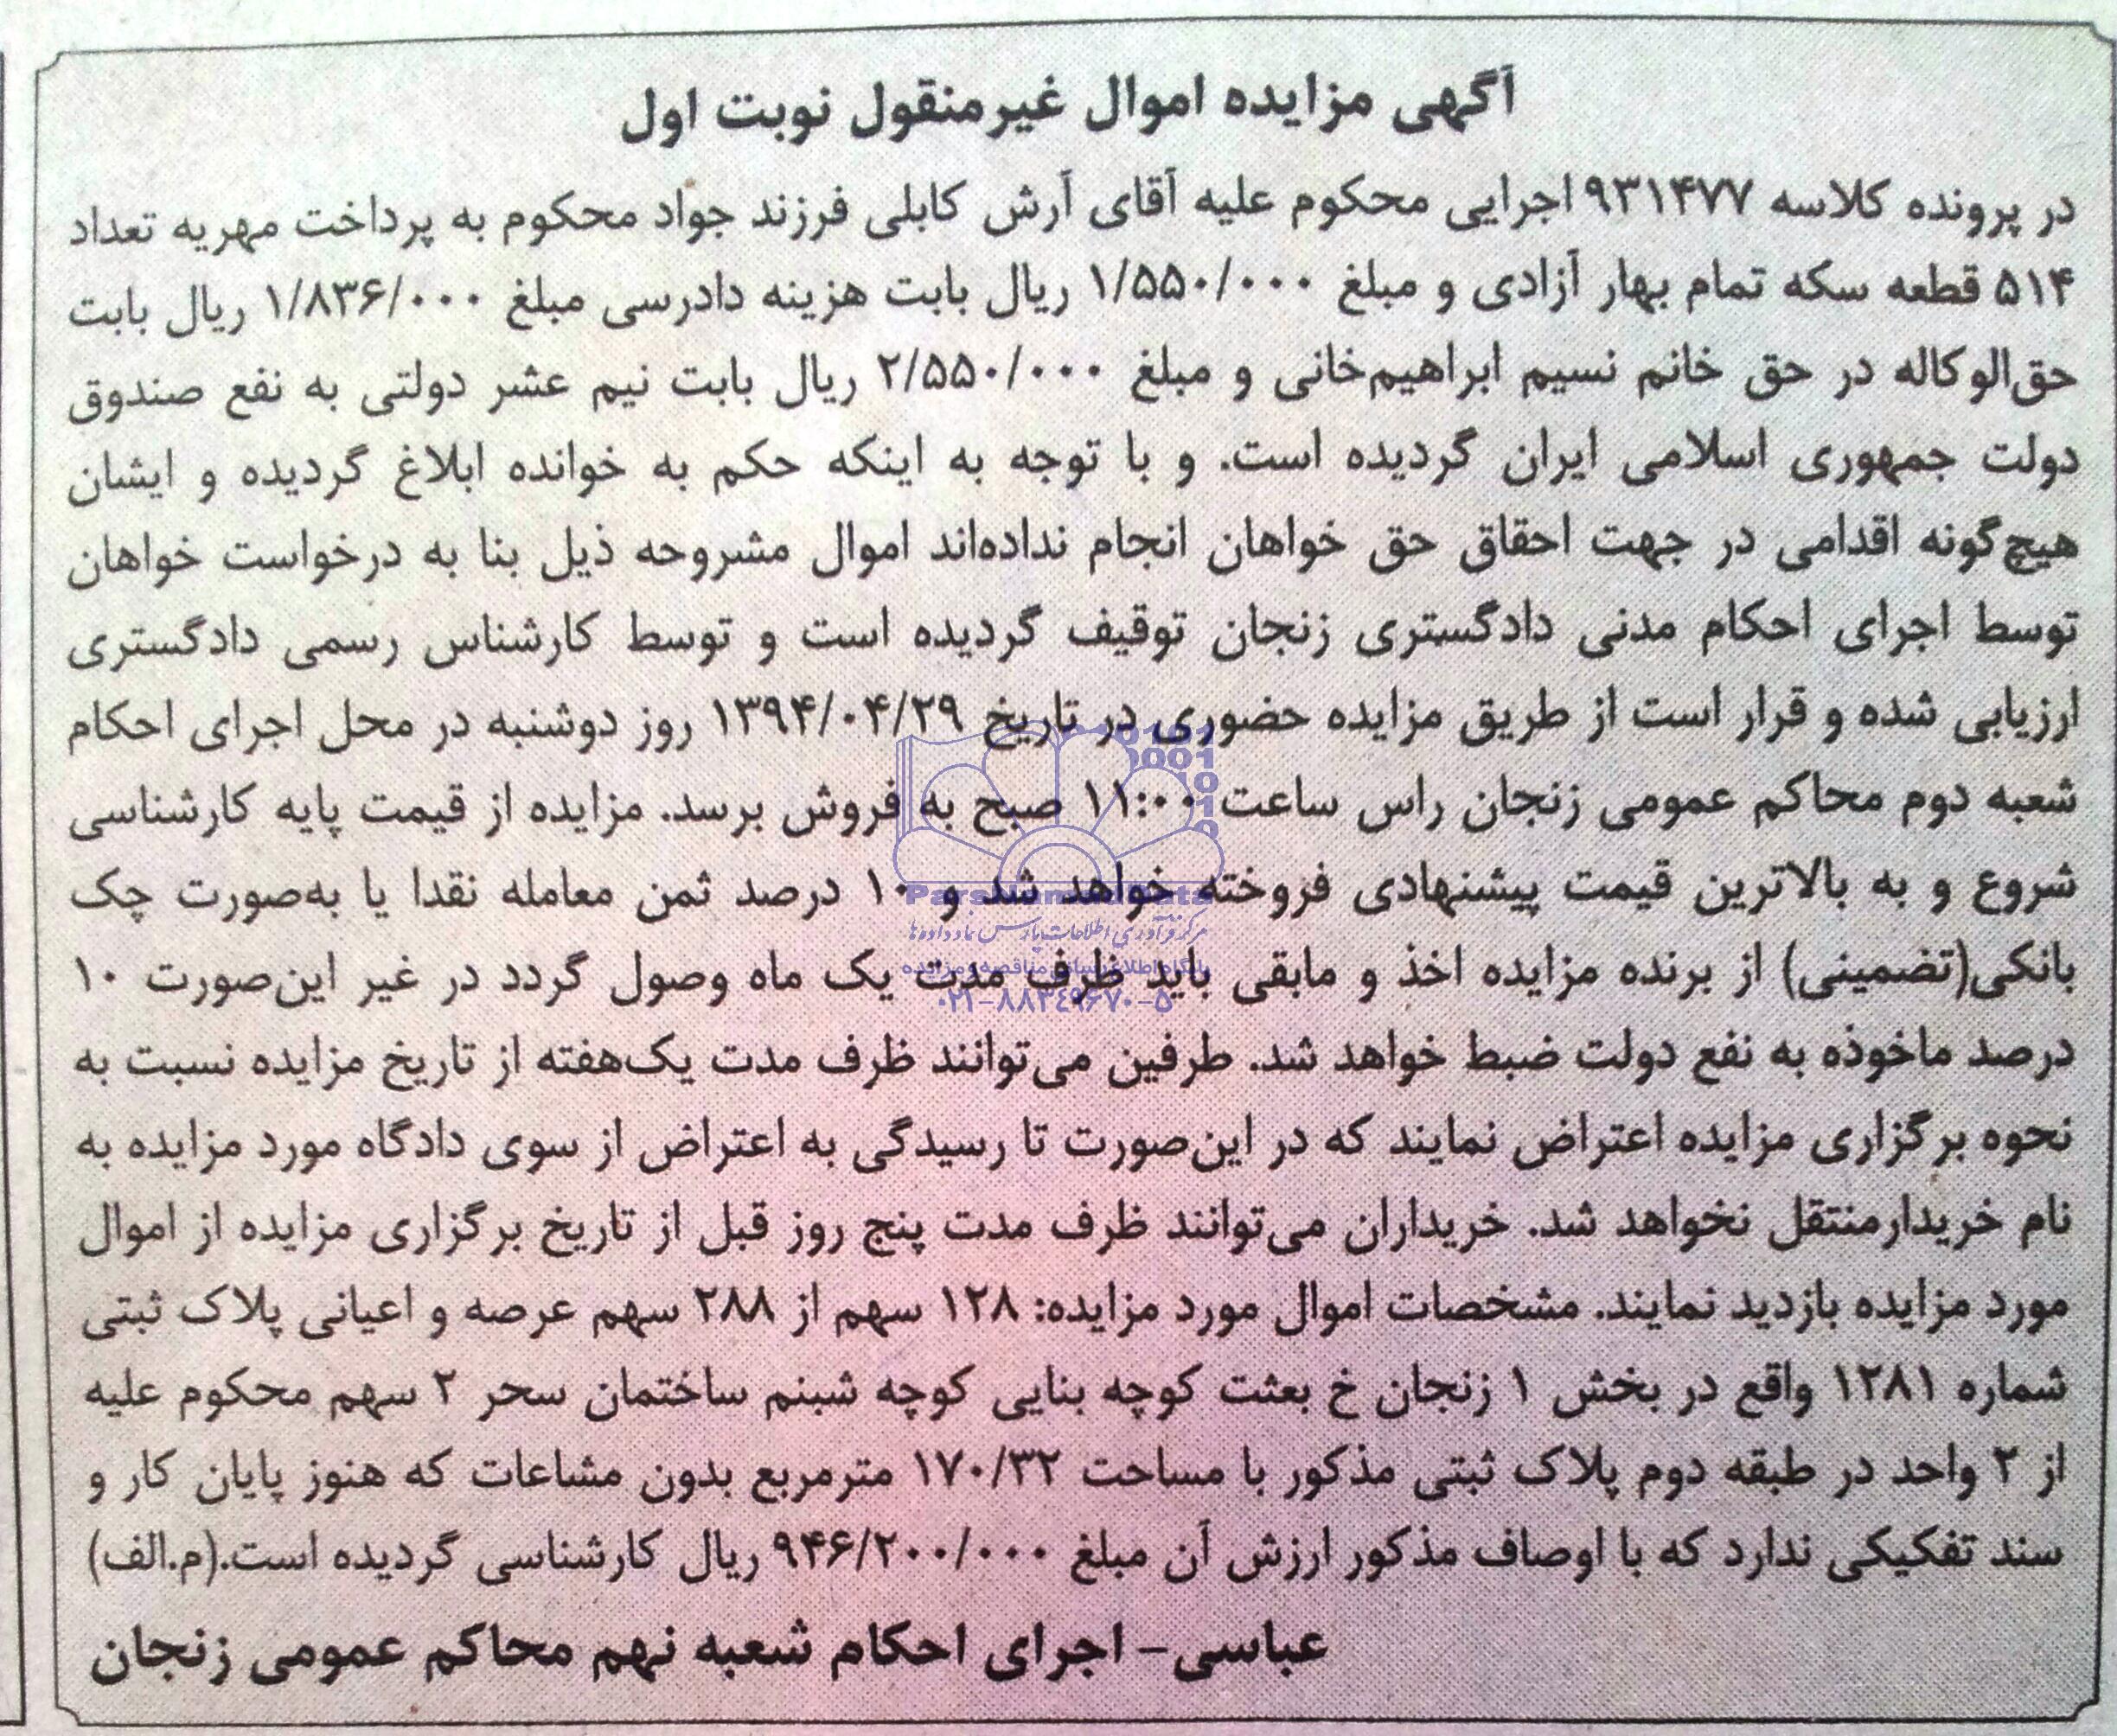 آگهی مزایده اموال غیرمنقول نوبت اول
در پرونده کلاسه ۹۳۱۴۷۷ اجرایی محکوم علیه آقای آرش کابلی فرزند جواد محکوم به پرداخت مهریه تعداد
۵۱۴ قطعه سکه تمام بهار آزادی و مبلغ ۱/۵۵۰/۰۰۰ ریال بابت هزینه دادرسی مبلغ ۱/۸۳۶/۰۰۰ ریال بابت
حق‌الوکاله در حق خانم نسیم ابراهیم‌خانی و مبلغ ۲/۵۵۰/۰۰۰ ریال بابت نیم عشر دولتی به نفع صندوق
دولت جمهوری اسلامی ایران گردیده است. و با توجه به اینکه حکم به خوانده ابلاغ گردیده و ایشان
هیچ‌گونه اقدامی در جهت احقاق حق خواهان انجام نداده‌اند اموال مشروحه ذیل بنا به درخواست خواهان
توسط اجرای احکام مدنی دادگستری زنجان توقیف گردیده است و توسط کارشناس رسمی دادگستری
ارزیابی شده و قرار است از طریق مزایده حضوری در تاریخ ۱۳۹۴/۰۴/۲۹ روز دوشنبه در محل اجرای احکام
شعبه دوم محاکم عمومی زنجان راس ساعت ۱۱:۰۰ صبح به فروش برسد. مزایده از قیمت پایه کارشناسی
شروع و به بالاترین قیمت پیشنهادی فروخته خواهد شد و ۱۰ درصد ثمن معامله نقدا یا به‌صورت چک
بانکی(تضمینی) از برنده مزایده اخذ و مابقی باید ظرف مدت یک ماه وصول گردد در غیر این‌صورت ۱۰
درصد ماخوذه به نفع دولت ضبط خواهد شد. طرفین می‌توانند ظرف مدت یک‌هفته از تاریخ مزایده نسبت به
نحوه برگزاری مزایده اعتراض نمایند که در این‌صورت تا رسیدگی به اعتراض از سوی دادگاه مورد مزایده به
نام خریدارمنتقل نخواهد شد. خریداران می‌توانند ظرف مدت پنج روز قبل از تاریخ برگزاری مزایده از اموال
مورد مزایده بازدید نمایند. مشخصات اموال مورد مزایده: ۱۲۸ سهم از ۲۸۸ سهم عرصه و اعیانی پلاک ثبتی
شماره ۱۲۸۱ واقع در بخش ۱ زنجان خ بعثت کوچه بنایی کوچه شبنم ساختمان سحر ۲ سهم محکوم علیه
از ۲ واحد در طبقه دوم پلاک ثبتی مذکور با مساحت ۱۷۰/۳۲ مترمربع بدون مشاعات که هنوز پایان کار و
سند تفکیکی ندارد که با اوصاف مذکور ارزش آن مبلغ ۹۴۶/۲۰۰/۰۰۰ ریال کارشناسی گردیده است.(م.الف)
عباسی- اجرای احکام شعبه نهم محاکم عمومی زنجان
مرکز فرآوری اطلاعات پارس نماد داده‌ها
پایگاه اطلاع رسانی مناقصه و مزایده
۰۲۱-۸۸۳۴۹۶۷۰-۵